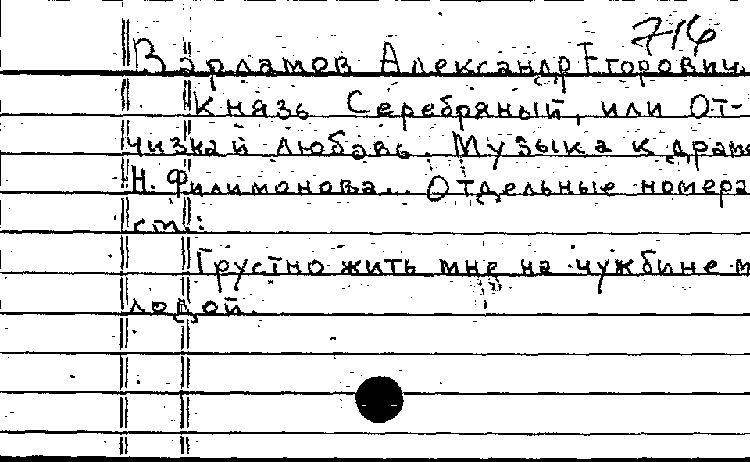 716
Варламов Александр Егорович.
Князь Серебряный, или От-
чизна и любовь. Музыка к драме
Н. Филимонова... Отдельные номера
см.:
Грустно жить мне на чужбине м
лодой.